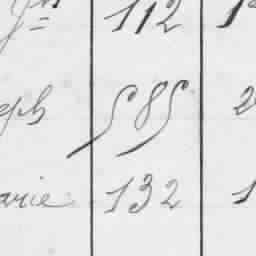 112 1
eph 585 2
arie 132 1